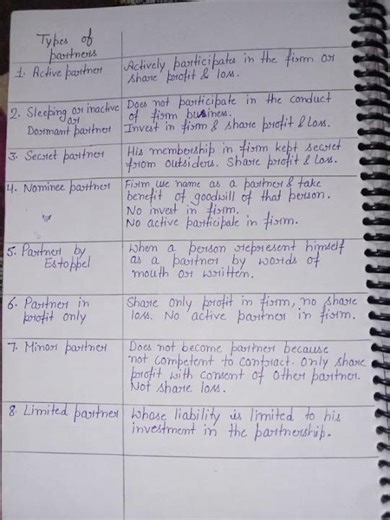 Types of
partners
1. Active partner
Actively participates in the firm or
share profit & loss.
2. Sleeping or inactive
or
Dormant partner
Does not participate in the conduct
of firm business.
Invest in firm & share profit & Loss.
3. Secret partner
His membership in firm kept secret
from outsiders. Share profit & loss.
4. Nominee partner
Firm use name as a partner & take
benefit of goodwill of that person.
No invest in firm.
No active participate in firm.
5. Partner by
Estoppel
When a person represent himself
as a partner by words of
mouth or written.
6. Partner in
profit only
Share only profit in firm, no share
loss. No active partner in firm.
7. Minor partner
Does not become partner because
not competent to contract. Only share
profit with consent of other partner.
Not share loss.
8. Limited partner
Whose liability is limited to his
investment in the partnership.